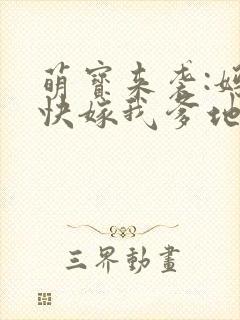 萌寶來袭:
快嫁我爹地
三界動畫